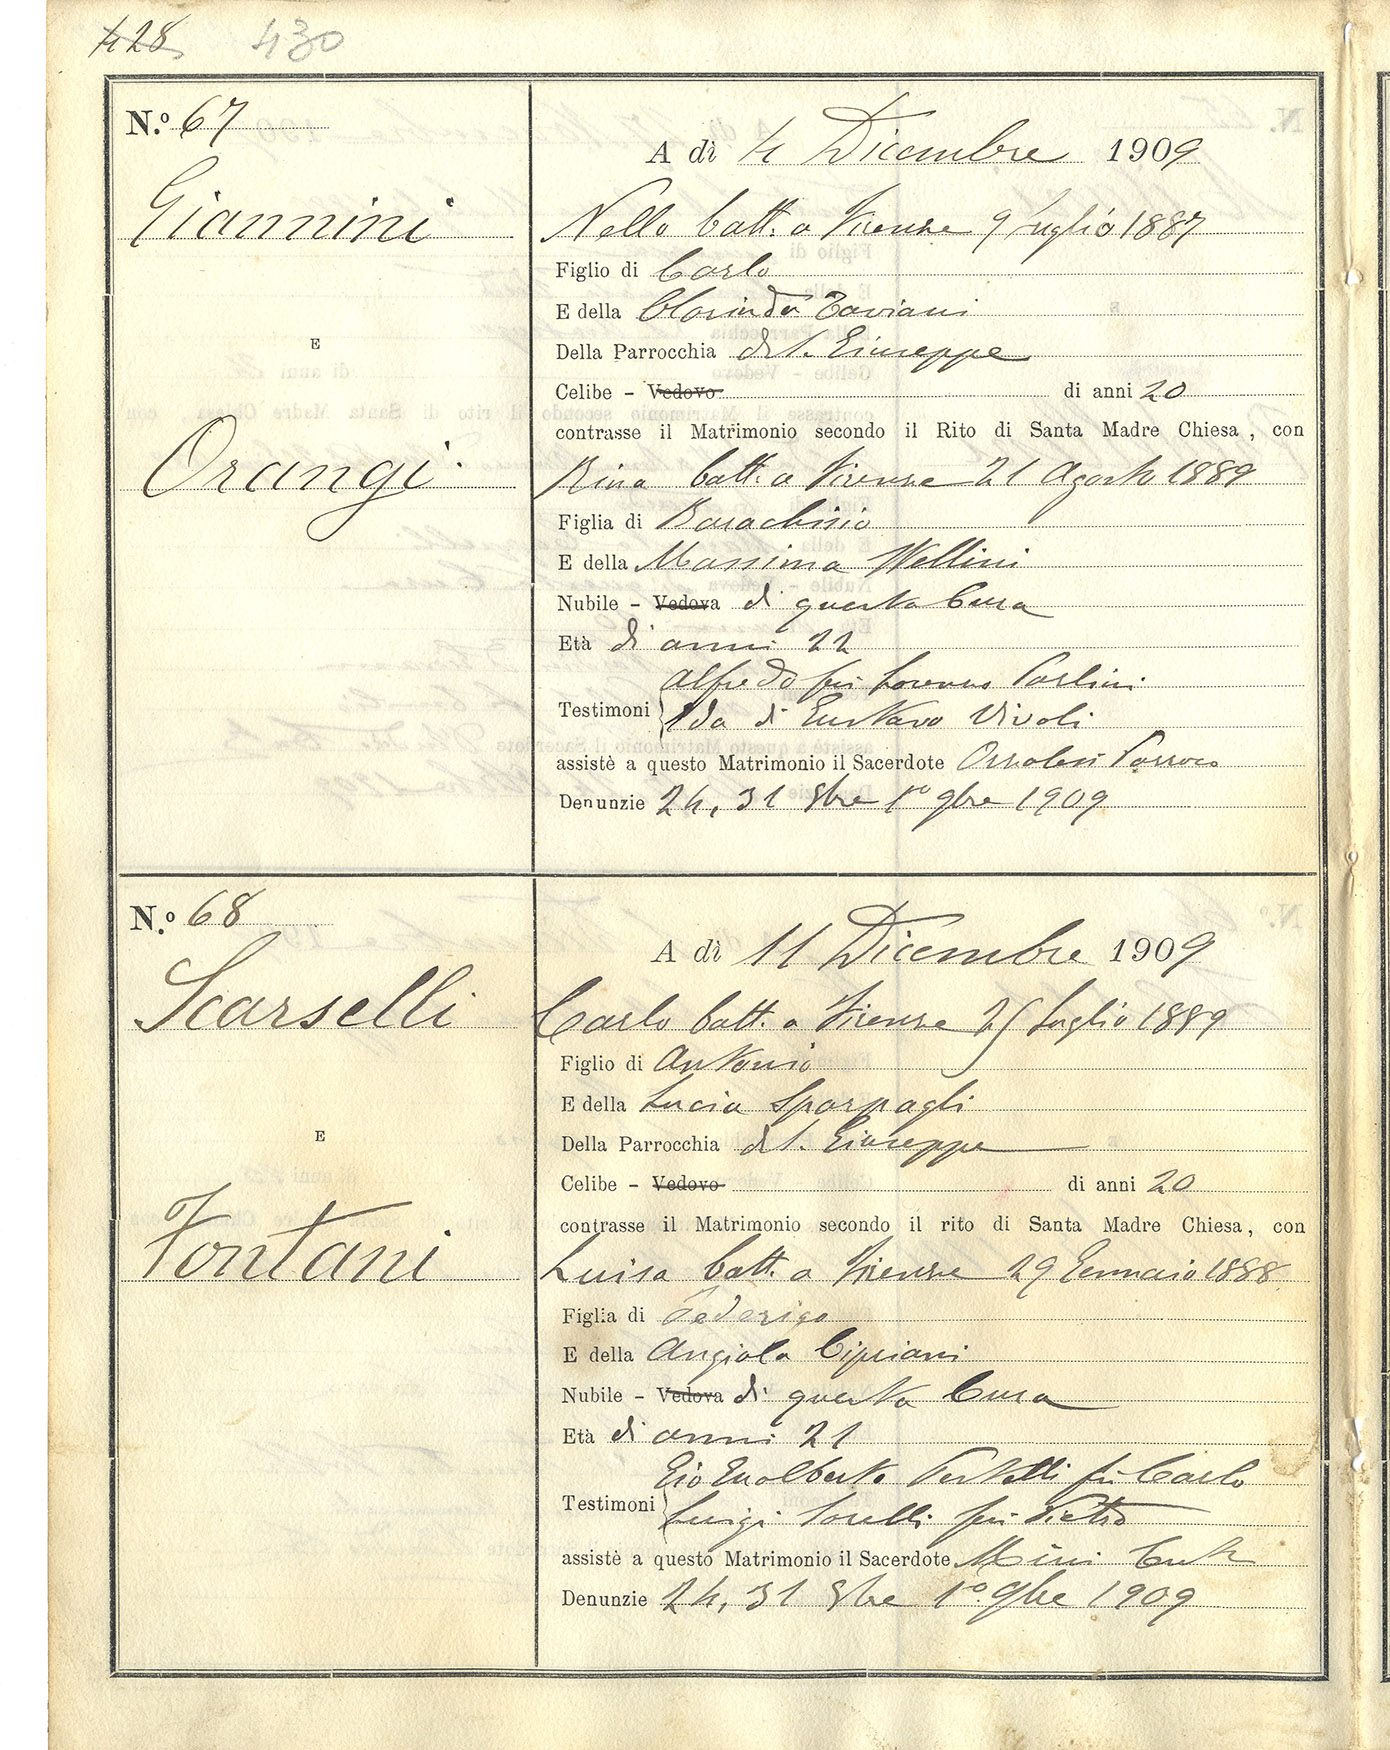 428 430
N.º 67
Giannini
E
Orangi
A dì 4 Dicembre 1909
Nello batt. a Firenze 9 Luglio 1887
Figlio di Carlo
E della Clorinda Taviani
Della Parrocchia di S. Giuseppe
Celibe - Vedovo di anni 20
contrasse il Matrimonio secondo il Rito di Santa Madre Chiesa, con
Rina batt. a Firenze 21 Agosto 1889
Figlia di Barachisio
E della Massima Wellini
Nubile - Vedova di questa Cura
Età di anni 22
Alfredo fu Lorenzo Parlini
Testimoni Ida di Gustavo Vivoli
assistè a questo Matrimonio il Sacerdote Parroco
Denunzie 24, 31 8bre 1º 9bre 1909
N.º 68
Scarselli
E
Fontani
A dì 11 Dicembre 1909
Carlo batt. a Firenze 25 Luglio 1889
Figlio di Antonio
E della Lucia Sparpagli
Della Parrocchia di S. Giuseppe
Celibe - Vedovo di anni 20
contrasse il Matrimonio secondo il rito di Santa Madre Chiesa, con
Luisa batt. a Firenze 29 Gennaio 1888
Figlia di Federigo
E della Angiola Cipriani
Nubile - Vedova di questa Cura
Età di anni 21
Gio Gualberto fu Carlo
Testimoni Luigi fu Pietro
assistè a questo Matrimonio il Sacerdote Mini
Denunzie 24, 31 8bre 1º 9bre 1909